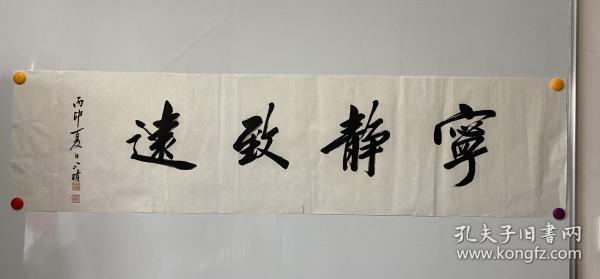 寧靜致遠
丙申夏日
孔夫子旧书网
www.kongfz.com